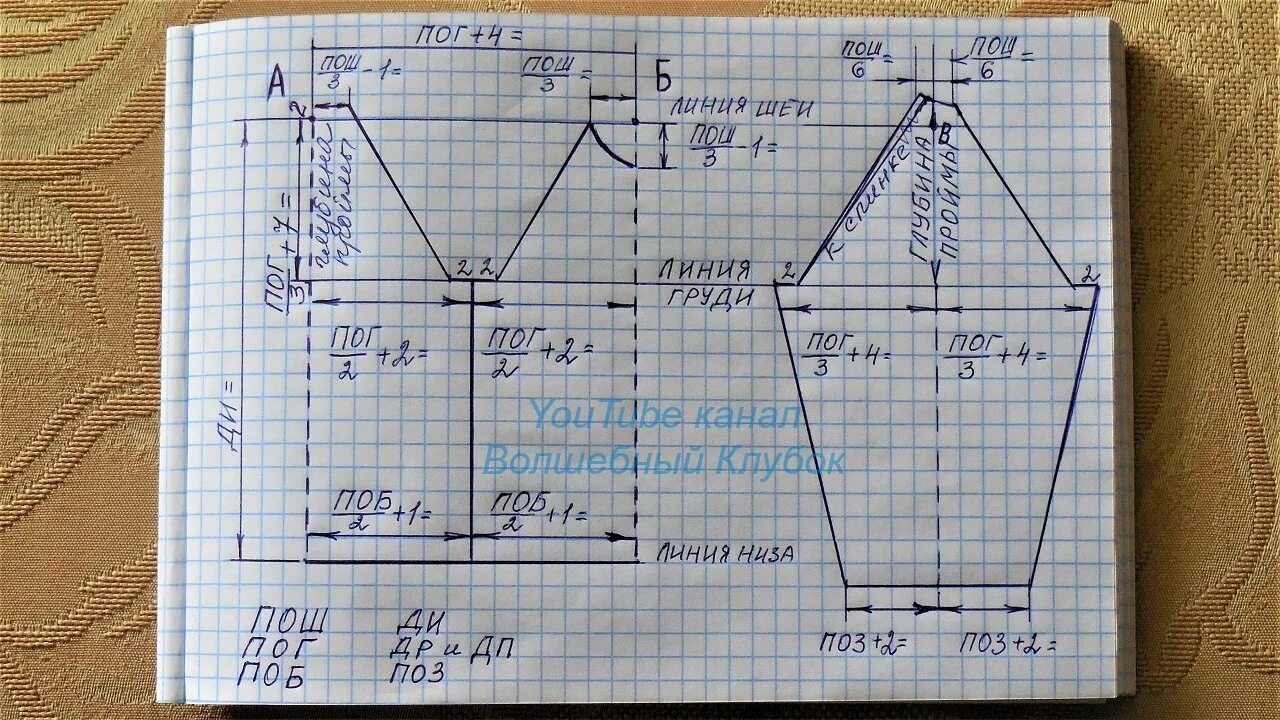 ПОГ+4=
ПОШ/6=
ПОШ/6=
А
ПОШ/3-1=
ПОШ/3=
Б
2
ЛИНИЯ ШЕИ
ПОШ/3-1=
В
глубина проймы
К СПИНКЕ
ГЛУБИНА ПРОЙМЫ
ПОГ/3+7=
2 2
ЛИНИЯ ГРУДИ
2
2
ПОГ/2+2=
ПОГ/2+2=
ПОГ/3+4=
ПОГ/3+4=
ДИ=
YouTube канал
Волшебный Клубок
ПОБ/2+1=
ПОБ/2+1=
ЛИНИЯ НИЗА
ПОЗ+2=
ПОЗ+2=
ПОШ ДИ
ПОГ ДР и ДП
ПОБ ПОЗ